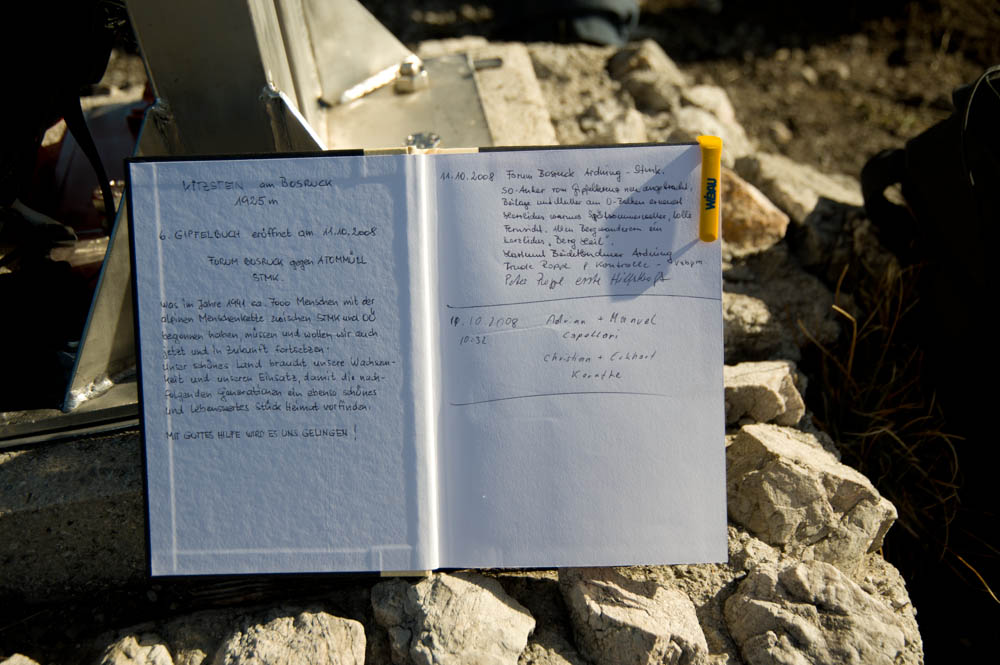 KITZSTEIN am BOSRUCK
1925 m
6. GIPFELBUCH eröffnet am 11.10.2008
FORUM BOSRUCK gegen ATOMMÜLL
STMK.
Was im Jahre 1991 ca. 7000 Menschen mit der
alpinen Menschenkette zwischen STMK und OÖ
begonnen haben, müssen und wollen wir auch
jetzt und in Zukunft fortsetzen.
Unser schönes Land braucht unsere Wachsam-
keit und unseren Einsatz, damit die nach-
folgenden Generationen ein ebenso schönes
und Lebenswertes Stück Heimat vorfinden.
MIT GOTTES HILFE WIRD ES UNS GELINGEN!
11.10.2008 Forum Bosruck Ardning - Stmk.
SO-Anker vom Gipfelkreuz neu angebracht,
Beilage und Mutter am O-Balken erneuert
Herrliches warmes Spätsommerwetter, tolle
Fernsicht. Allen Bergwanderern ein
herzliches "Berg Heil".
Hartmut Ardning
Trude Peter Kontrolle -
Peter erste Hilfskraft
11.10.2008 Adrian + Manuel
10:32 Capellari
Christian + Eckhart
WEBAU